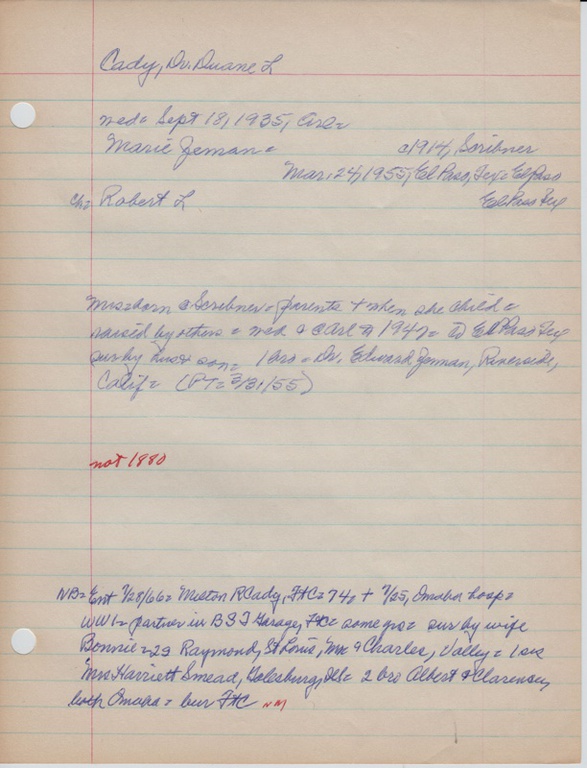 Cady, Dr. Duane L
med= Sept 18, 1935,
Marie Zeman = c1914, Scribner
Mar. 24, 1955, El Paso, Tex = El Paso
Ch= Robert L El Paso Tex
Mrs=born @ Scribner = parents + when she child =
raised by others = med @ 1947 = to El Paso Tex
sur by hus + son = 1 bro = Dr. Edward Zeman, Riverside,
Calif = (PT= 3/31/55)
not 1880
NB= Ent 7/28/66= Milton R Cady, = 74 = + 7/25, Omaha hosp =
WW1= partner in Garage, = some yrs = sur by wife
Bonnie = 2s Raymond, St Louis, Mo & Charles, Valley = 1 sis
Mrs Harriett Smead, Galesburg, Ills = 2 bro Albert & Clarence,
both Omaha = bur NM